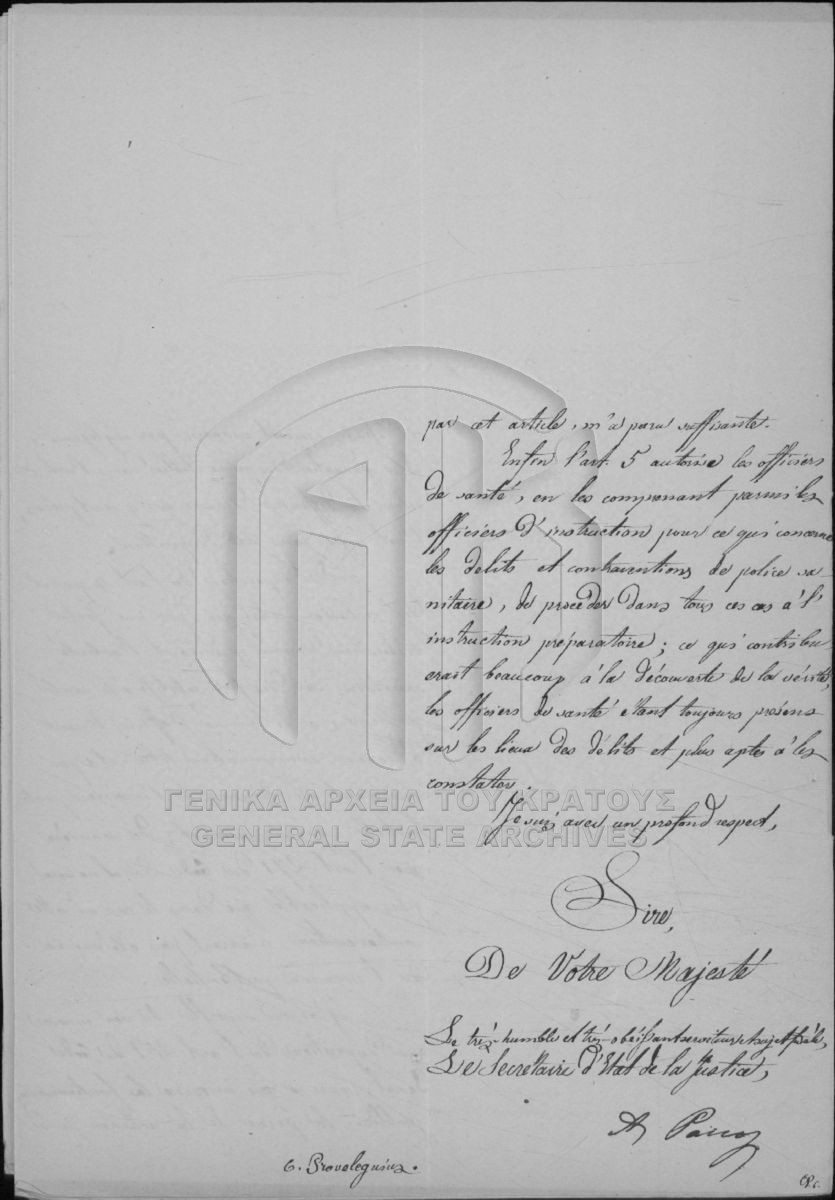 par cet article, m'a paru suffisante.
Enfin l'art. 5 autorise les officiers
de santé, en les comprenant parmi les
officiers d'instruction pour ce qui concerne
les delits et contraventions de police sa-
nitaire, de procéder dans tous ces cas à l'
instruction préparatoire; ce qui contribu-
erait beaucoup à la découverte de la vérité,
les officiers de santé étant toujours présens
sur les lieux des délits et plus aptes à les
constater.
Je suis avec un profond respect,
Sire,
De Votre Majesté
Le très-humble et très-obéissant serviteur et sujet fidèle,
Le Secretaire d'Etat de la Justice,
A
ΓΕΝΙΚΑ ΑΡΧΕΙΑ ΤΟΥ ΚΡΑΤΟΥΣ
GENERAL STATE ARCHIVES